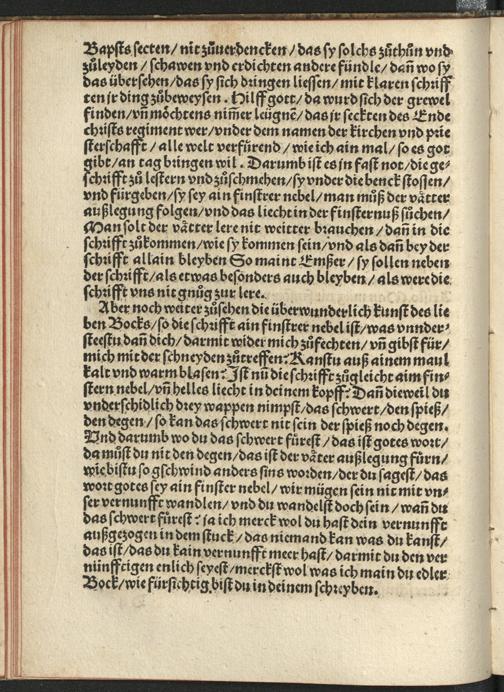 Bapsts secten/ nit zůuerdencken/ das sy solchs zůthůn vnd
zůleyden/ schawen vnd erdichten andere fündle/ dañ wo sy
das übersehen/ das sy sich dringen liessen/ mit klaren schriff
ten jr ding zůbeweysen. Hilff gott/ da wurd sich der grewel
finden/ vñ möchtens nim̃er leügnẽ/ das jr seckten des Ende
christs regiment wer/ vnder dem namen der kirchen vnd prie
sterschafft/ alle welt verfürend/ wie ich ain mal/ so es got
gibt/ an tag bringen wil. Darumb ist es jn fast not/ die ge⸗
schrifft zů lestern vnd zůschmehen/ sy vnder die benck stossen/
vnd fürgeben/ sy sey ain finstrer nebel/ man můß der vätter
außlegung folgen/ vnd das liecht in der finsternuß sůchen/
Man solt der vätter lere nit weitter brauchen/ dañ in die
schrifft zůkommen/ wie sy kommen sein/ vnd als dañ bey der
schrifft allain bleyben So maint Emßer/ sy sollen neben
der schrifft/ als etwas besonders auch bleyben/ als were die
schrifft vns nit gnůg zur lere.
Aber noch weiter zůsehen die überwunderlich kunst des lie
ben Bocks/ so die schrifft ain finstrer nebel ist/ was vnnder⸗
steestu dañ dich/ darmit wider mich zůfechten/ vñ gibst für/
mich mit der schneyden zůtreffen? Kanstu auß ainem maul
kalt vnd warm blasen? Jst nũ die schrifft zůgleicht aim fin⸗
stern nebel/ vñ helles liecht in deinem kopff? Dañ dieweil du
vnderschidlich drey wappen nimpst/ das schwert/ den spieß/
den degen/ so kan das schwert nit sein der spieß noch degen.
Vnd darumb wo du das schwert fürest/ das ist gotes wort/
da můst du nit den degen/ das ist der väter außlegung fürn/
wie bistu so gschwind anders sins worden/ der du sagest/ das
wort gotes sey ain finster nebel/ wir mügen sein nit mit vn⸗
ser vernunfft wandlen/ vnd du wandelst doch sein/ wañ du
das schwert fürest? ja ich merck wol du hast dein vernunfft
außgezogen in dem stuck/ das niemand kan was du kanst/
das ist/ das du kain vernunfft meer hast/ darmit du den ver
nünfftigen enlich seyest/ merckst wol was ich main du edler
Bock/ wie fürsichtig bist du in deinem schreyben.